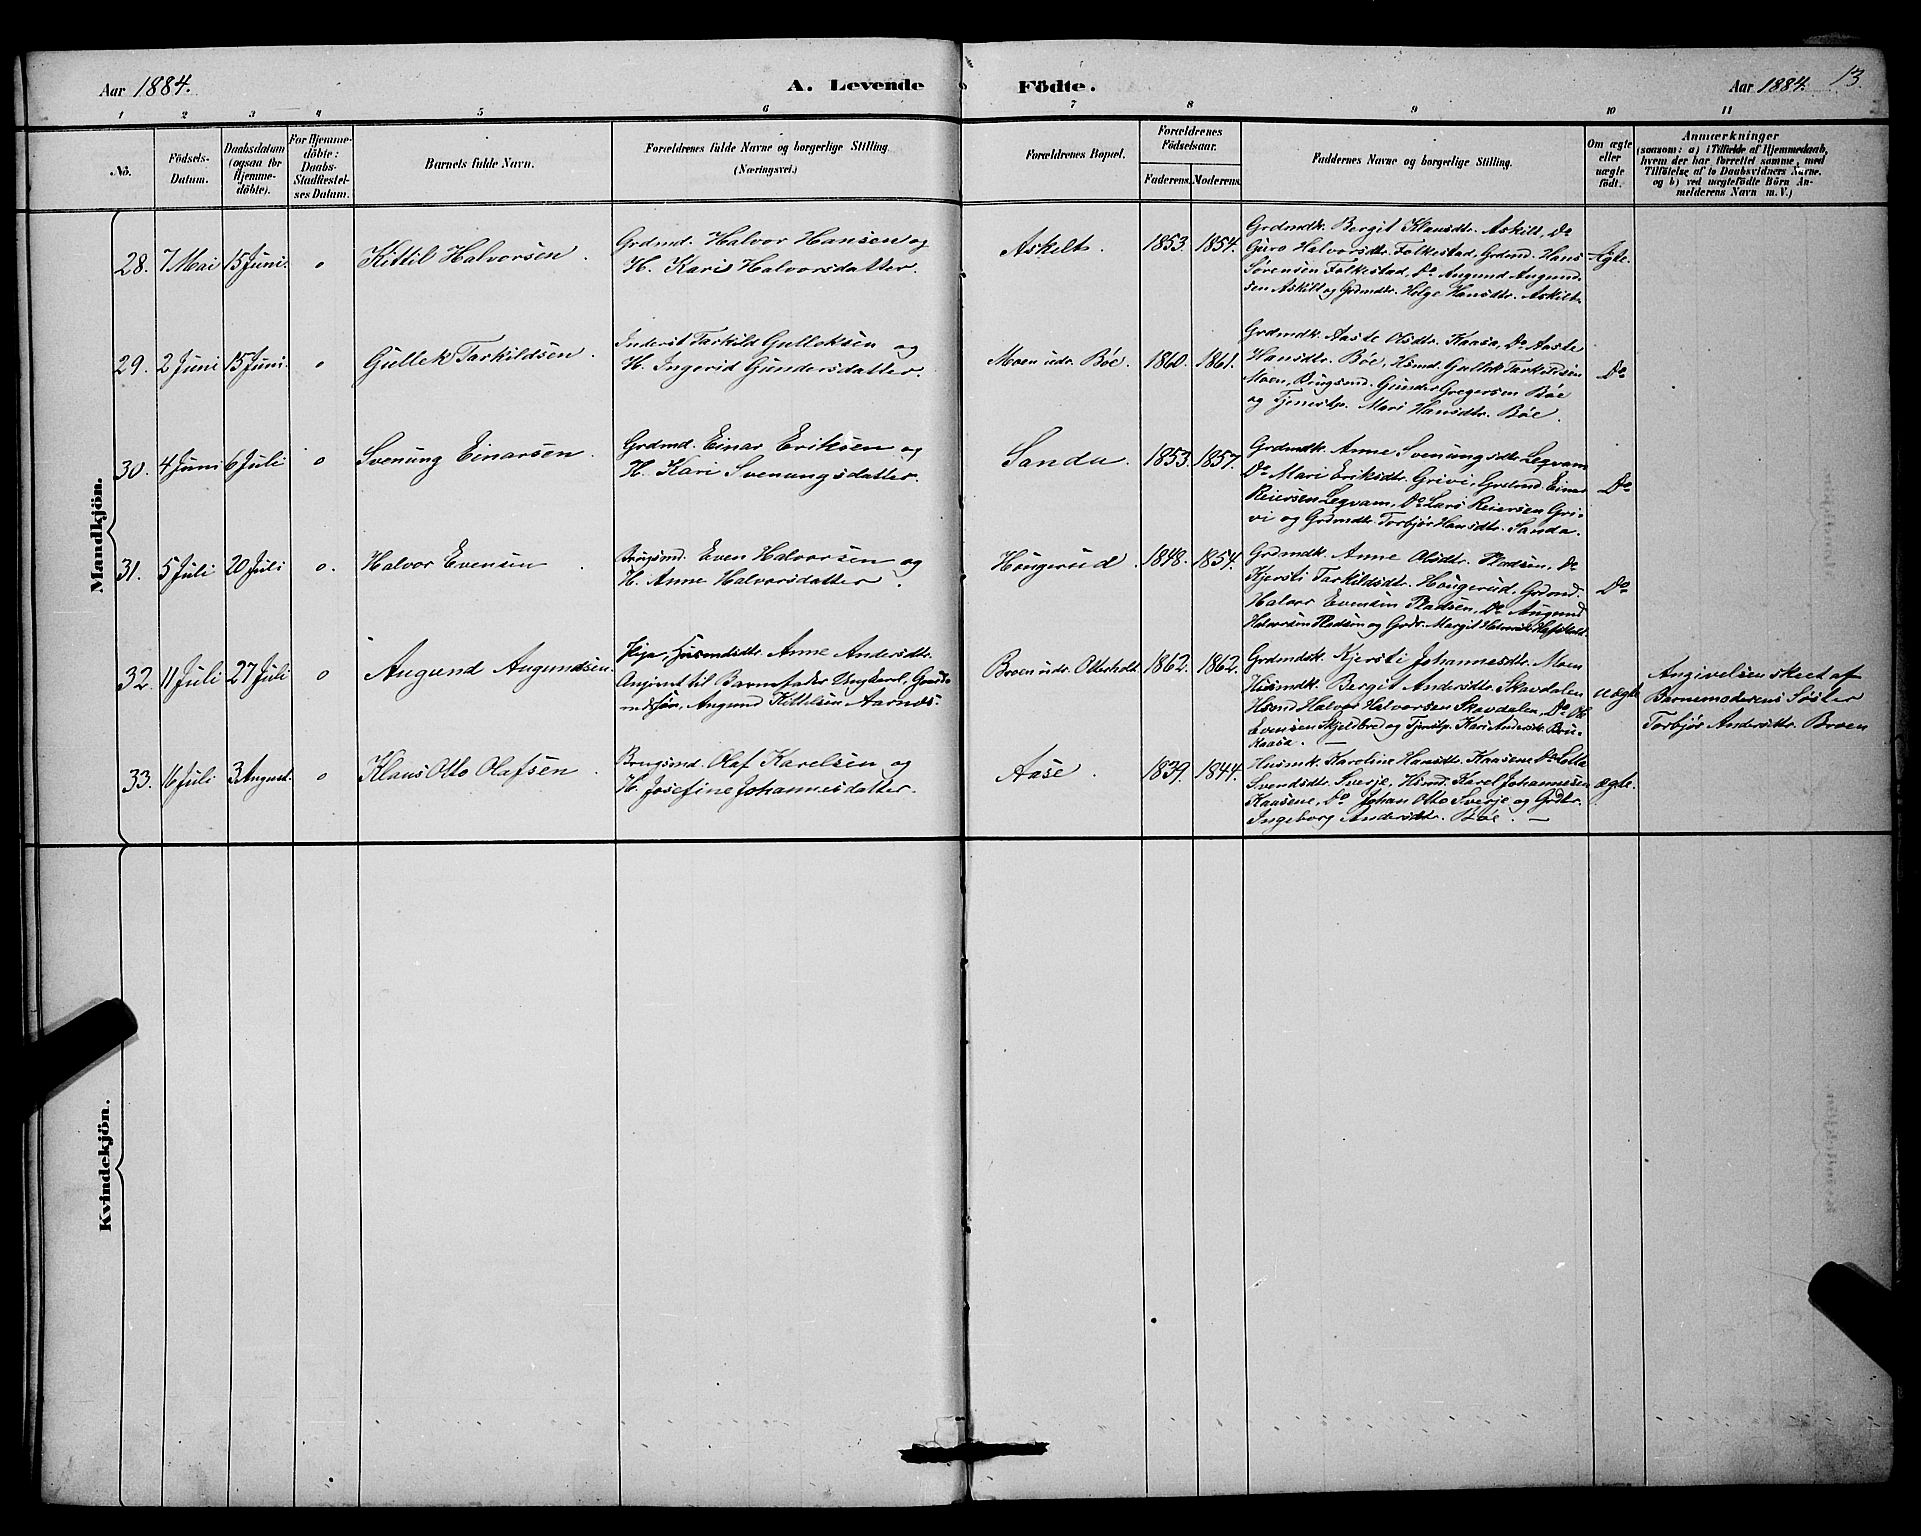 Aar 1884. A. Levende Födte. Aar 1884. 13.
1 2 3 4 5 6 7 8 9 10 11
No.
Födsels-
Datum.
Daabsdatum
(ogsaa for
Hjemme-
döbte).
For Hjemme-
döbte:
Daabs-
Stadfestel-
ses Datum.
Barnets fulde Navn.
Forældrenes fulde Navne og borgerlige Stilling
(Næringsvei.)
Forældrenes Bopæl.
Forældrenes
Födselsaar.
Faderens. Moderens.
Faddernes Navne og borgerlige Stilling.
Om ægte
eller
uægte
født.
Anmærkninger
(saasom: a) i Tilfælde af Hjemmedaab,
hvem der har forrettet samme, med
Tilföielse af to Daabsvidners Navne.
og b) ved uægtefödte Börn An-
melderens Navn m. V.)
Mandkjön.
28. 7 Mai 15 Juni. o Kittil Halvorsen.
Grdmd. Halvor Hansen og
H. Kari Halvorsdatter.
Askilt. 1853. 1854.
Grdmdk. Bergit Klausdtr. Askilt, Do
Guro Halvorsdtr. Folkestad, Grdmd. Hans
Sørensen Folkestad, Do Augund Augund-
sen Askilt og Grdmdtr. Helge Hansdtr. Askilt.
Ægte.
29. 2 Juni 15 Juni. o Gullek Tarkildsen.
Inderst Tarkild Gulleksen og
H. Ingerid Gundersdatter.
Moen udr. Bőe. 1860. 1861.
Grdmdk. Aaste Olsdtr. Kaasa, Do Aaste
Hansdtr. Bőe, Hsmd. Gullek Tarkildsen
Moen, Brugsmd. Gunder Gregersen Bőe
og Tjenestp. Mari Hansdtr. Bőe.
Do
30. 4 Juni 6 Juli o Svenung Einarsen.
Grdmd. Einar Eriksen og
H. Kari Svenungsdatter.
Sanda. 1853. 1857.
Grdmdk. Anne Svenungsdtr Legvam
Do Mari Eriksdtr. Grivi, Grdmd. Einar
Reiersen Legvam, Do Lars Reiersen Gri-
vi og Grdmdtr. Torbjør Hansdtr. Sanda.
Do
31. 5 Juli 20 Juli o. Halvor Evensen
Brugsmd. Even Halvorsen og
H. Anne Halvorsdatter.
Hougerud 1848. 1854.
Grdmdk. Anne Olsdtr. Pladsen, Do
Kjersti Tarkildsdtr. Hougerud, Grdmd.
Halvor Evensen Pladsen, Do Augund
Halvorsen Pladsen og Grdr. Margit
Do
32. 11 Juli 27 Juli o Augund Augundsen.
Pige, Husmdsdtr. Anne Andersdtr.
Angivet til Barnefader Ungkarl, Gaard-
mdssøn, Augund Kittelsen Aarnes.
Broen udr. Otterholt. 1862. 1862.
Grdmdsk. Kjersti Johannesdtr. Moen
Husmdk. Bergit Andersdtr. Skavdalen
Hsmd Halvor Halvorsen Skavdalen, Do Ole
Evensen Skjelbred og Tjenstp. Kari Andersdtr.
Kaasa. —
uægte
Angivelsen skeet af
Barnemoderens Søster
Torbjør Andersdtr. Broen
33. 16 Juli 3 August. o Klaus Otto Olafsen.
Brugsmd. Olaf Karelsen og
H. Josefine Johannesdatter.
Aase. 1839. 1844.
Husmk. Karoline Hansdtr. Kaasene Do Lotte
Svendsdtr. Sverje, Hsmd. Karel Johannesen
Kaasene, Do Johan Otto Sverje og Grdtr.
Ingeborg Andersdtr. Bőe. —
ægte.
Kvindekjön.